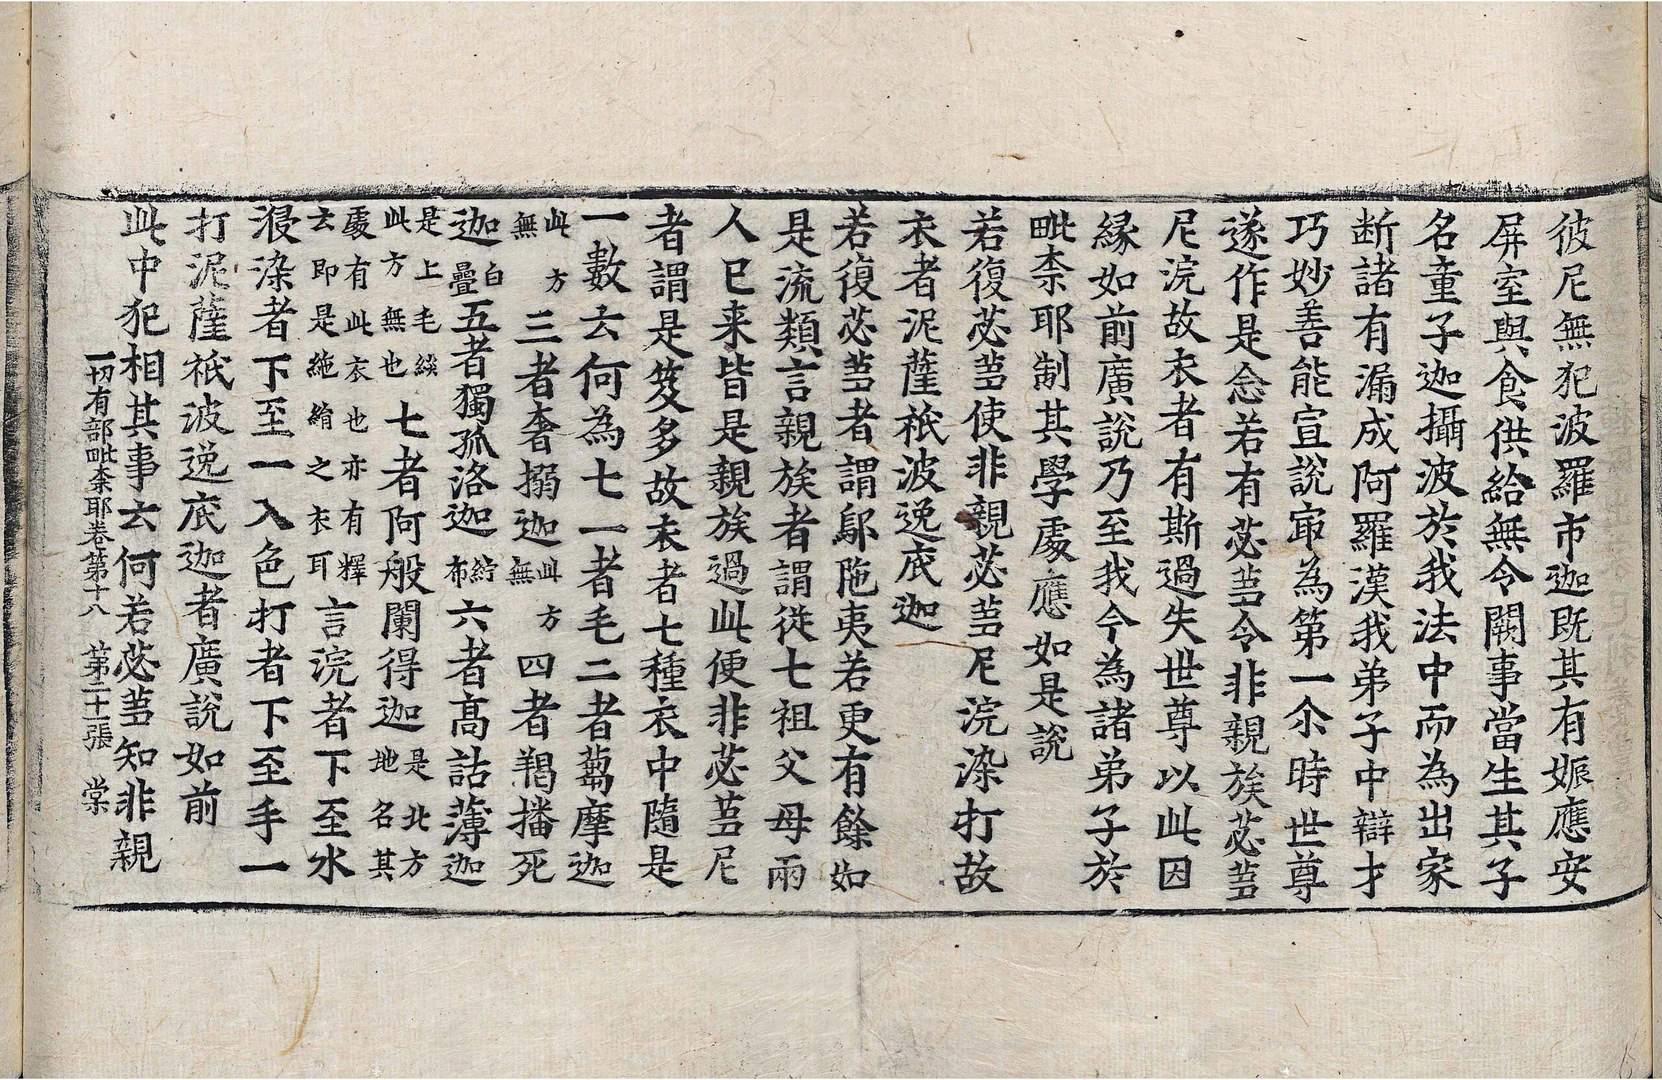 彼尼無犯波羅市迦既其有娠應安
屏室與食供給無令闕事當生其子
名童子迦攝波於我法中而為出家
断諸有漏成阿羅漢我弟子中辯才
巧妙善能宣說冣為第一尒時世尊
遂作是念若有苾蒭令非親族苾蒭
尼浣故衣者有斯過失世尊以此因
縁如前廣說乃至我今為諸弟子於
毗柰耶制其學處應如是說
若復苾蒭使非親苾蒭尼浣染打故
衣者泥薩祇波逸底迦
若復苾蒭者謂鄔陁夷若更有餘如
是流類言親族者謂從七祖父母兩
人已来皆是親族過此便非苾蒭尼
者謂是笈多故衣者七種衣中隨是
一數云何為七一者毛二者蒭摩迦
此方無三者奢搦迦此方無四者羯播死
迦白疊五者獨孤洛迦紵布六者高詁薄迦
是上毛緂此方無也七者阿般闌得迦是北方地名其
處有此衣也亦有釋云即是絁絹之衣耳言浣者下至水
浸染者下至一入色打者下至手一
打泥薩祇波逸底迦者廣說如前
此中犯相其事云何若苾蒭知非親
一切有部毗柰耶卷第十八　第二十一張　棠